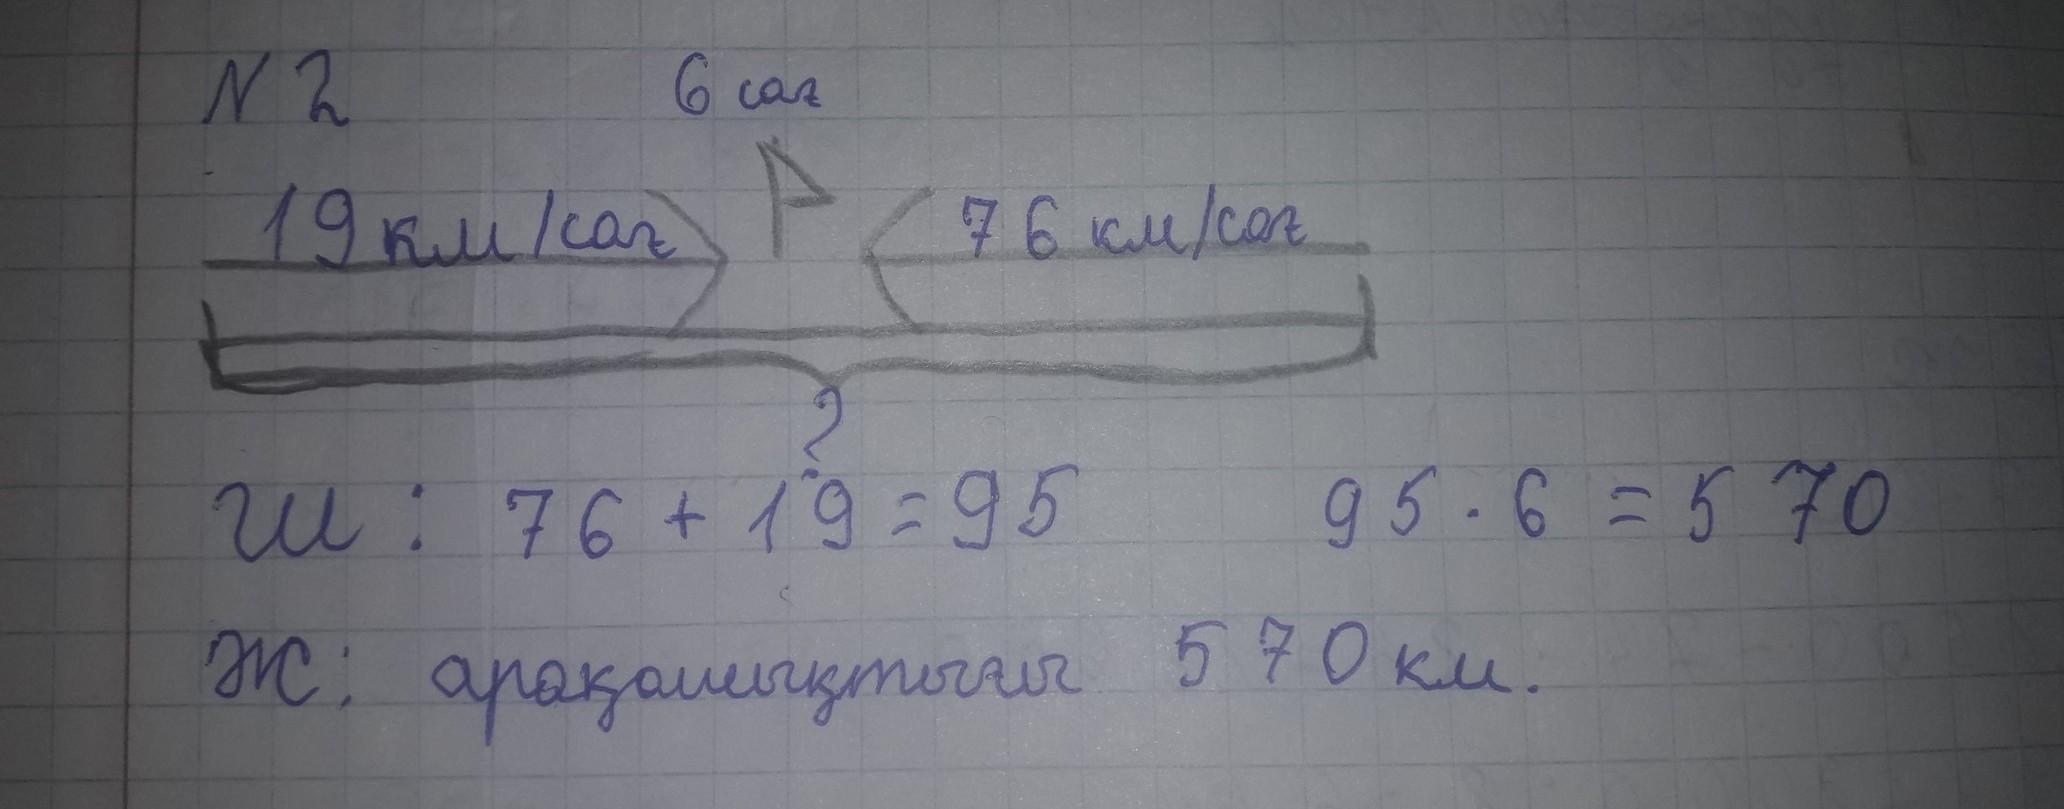 N 2 6 сағ
19 км/сағ 76 км/сағ
?
Ш : 76 + 19 = 95 95 · 6 = 570
Ж: арақашықтығы 570 км.